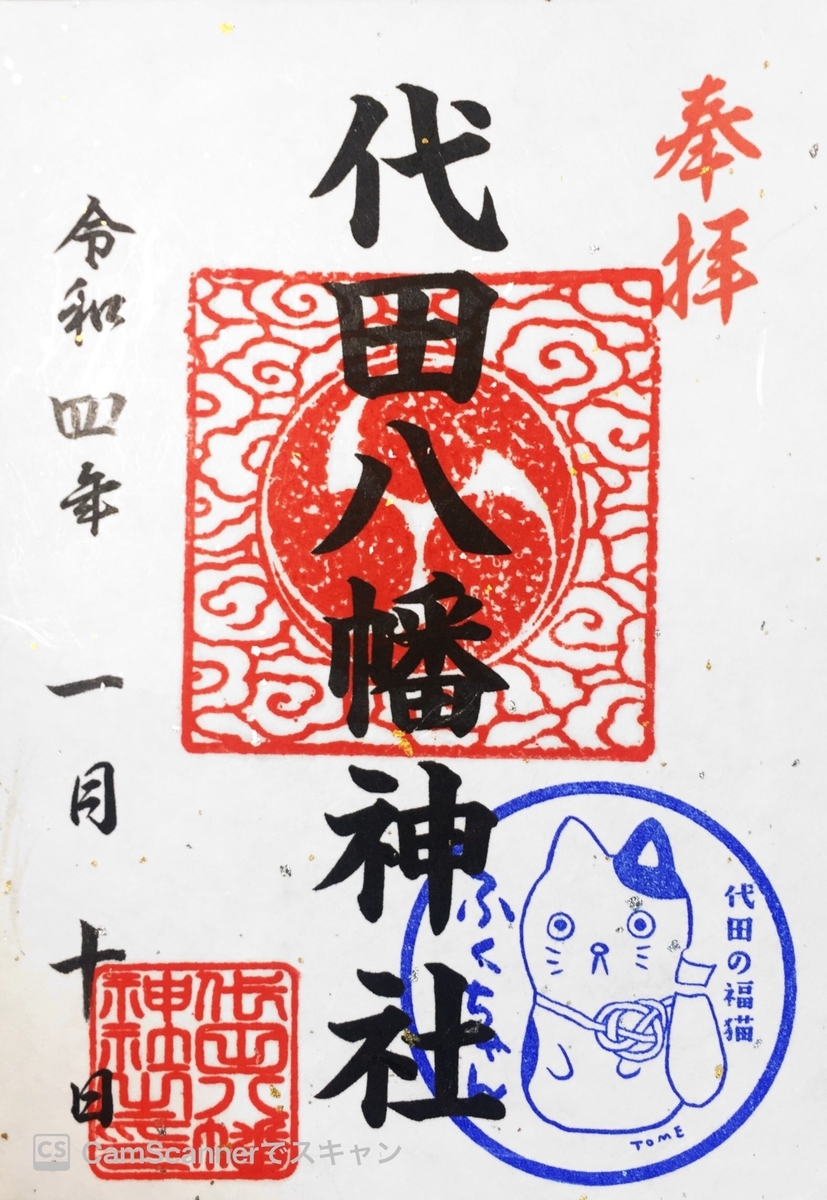 奉拝
代田八幡神社
令和四年一月十日
代田の福猫
ふくちゃん
TOME
代田八幡
神社之印
CS CamScannerでスキャン